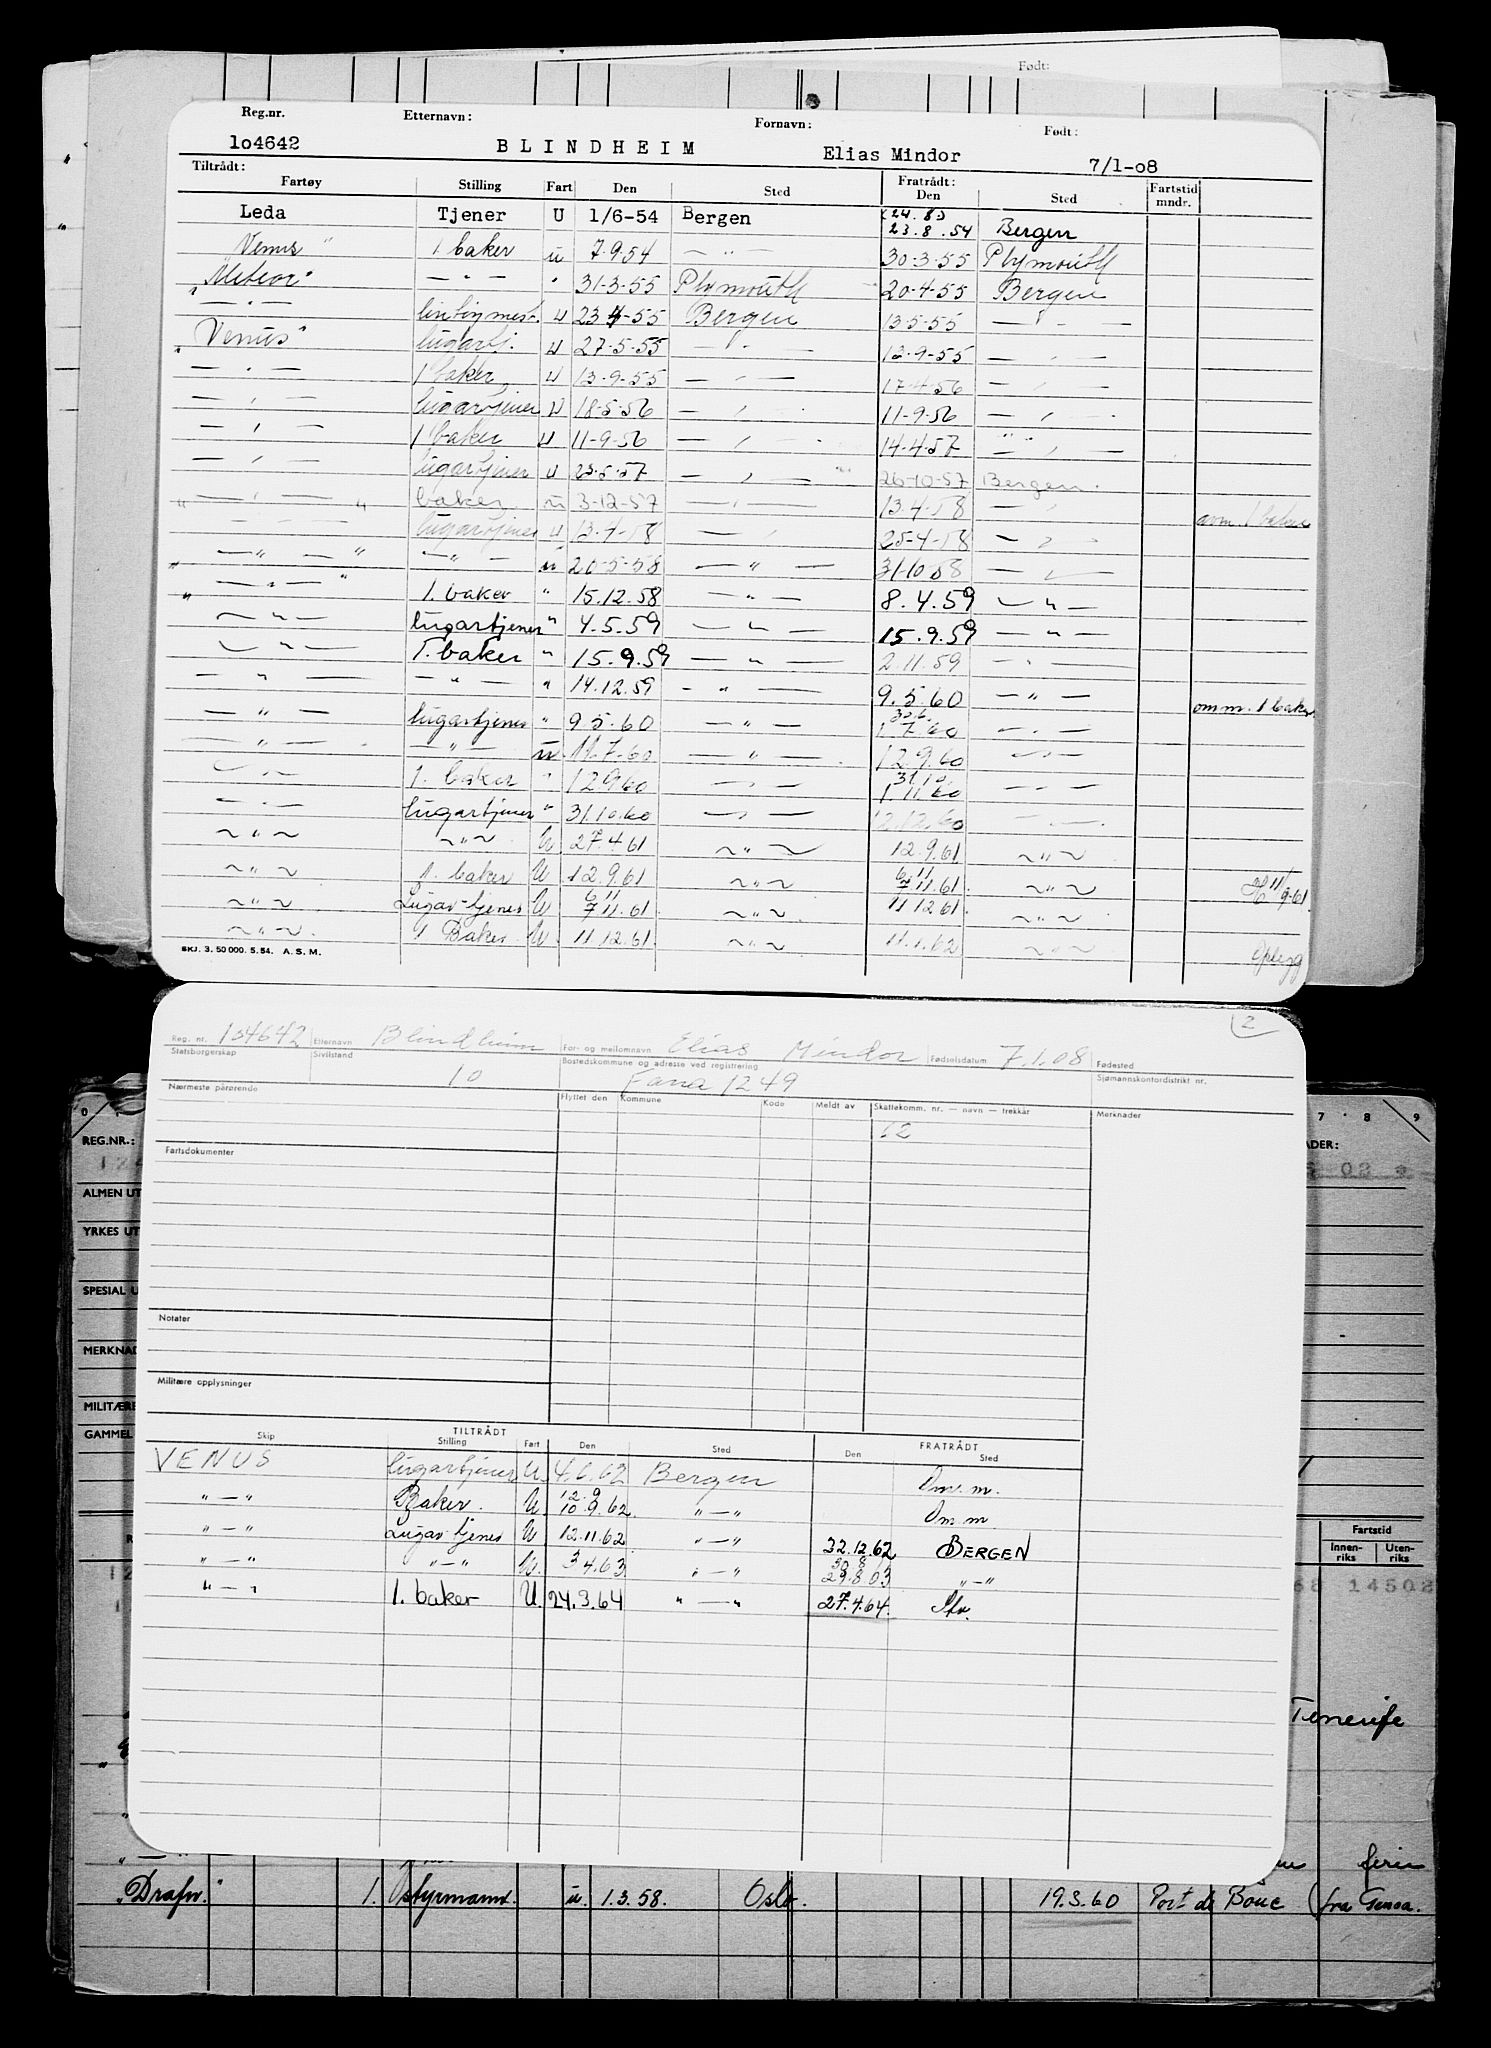 Født:
Reg.nr. Etternavn: Fornavn: Født:
lo4642 BLINDHEIM Elias Mindor 7/1-o8
Tiltrådt: Fratrådt:
Fartøy Stilling Fart Den Sted Den Sted Fartstid mndr.
Leda Tjener U 1/6-54 Bergen (24.8) 23.8.54 Bergen
Venus" 1 baker u 7.9.54 — " — 30-3-55 Plymouth
"Meteor" — " — " 31-3-55 Plymouth 20-4-55 Bergen
— " — u 23 4-55 Bergen 13-5-55 — " —
"Venus" lugartj. u 27-5-55 — " — 12-9-55 — " —
— " — 1 baker u 13-9-55 — " — 17-4-56 — " —
— " — lugartjener u 18-5-56 — " — 11-9-56 — " —
— " — 1 baker u 11-9-56 — " — 14-4-57 — " —
— " — lugartjener u 23-5-57 — " — 26-10-57 Bergen.
" — " — " baker u 3-12-57 — " — 13-4-58 — " — 1 baker
— " — lugartjener u 13-4-58 — " — 25-4-58 — " —
" — " — " — " — u 20-5-58 — " — 31-10-58 — " —
" — " — " 1. baker " 15.12.58 — " — 8.4.59 — " —
— " — lugartjener " 4.5.59 — " — 15.9.59 — " —
— " — 1. baker " 15.9.59 — " — 2.11.59 — " —
— " — — " — " 14.12.59 — " — 9.5.60 — " — omm. 1 baker
— " — lugartjener " 9.5.60 — " — 30.6. 1.7.60 — " —
— " — — " — u 11.7.60 — " — 12.9.60 — " —
— " — 1. baker " 12.9.60 — " — 31.10. 1.11.60 — " —
— " — lugartjener " 31.10.60 — " — 12.12.60 — " —
— " — — " — U. 27.4.61 — " — 12.9.61 — " —
— " — 1. baker U 12.9.61 — " — 6.11 7.11.61 — " — 11/9-61.
— " — Lugar-tjener U 6.11 7.11.61 — " — 11.12.61 — " —
— " — 1 Baker U. 11.12.61. — " — 11.1.62 — " —
SKJ. 3. 50 000. 5.54. A. S. M.
2
Reg. nr. 104642 Etternavn Blindheim For- og mellomnavn Elias Mindor Fødselsdatum 7.1.08 Fødested
Statsborgerskap Sivilstand 10 Bostedskommune og adresse ved registrering Fana 1249 Sjømannskontordistrikt nr.
Nærmeste pårørende Flyttet den Kommune Kode Meldt av Skattekomm. nr. — navn — trekkår Merknader
62
Fartsdokumenter
Notater
Militære opplysninger
TILTRÅDT FRATRÅDT
Skip Stilling Fart Den Sted Den Sted
VENUS lugartjener U. 4.6.62 Bergen Om. m.
" — " Baker. U. 12.9 10.9.62 " — " Om m
" — " Lugar tjener U 12.11.62 " — " 22.12.62 BERGEN
" — " " — " U. 3 4.63 " — " 30 8 29.8.63 " — "
" — " 1. baker U. 24.3.64 " — " 27.4.64.
0 7 · 8 · 9
REG.NR.:
ALMEN UT
YRKES UT
SPESIAL U
MERKNAD
MILITÆRE
GAMMEL
02 *
Fartstid
Innen-riks Uten-riks
68 14502
Tenerife
ferie
"Drafn." 1. Ostyrmand. u. 1.3.58. Oslo. 19.3.60 Port de Bouc (fra Genoa.